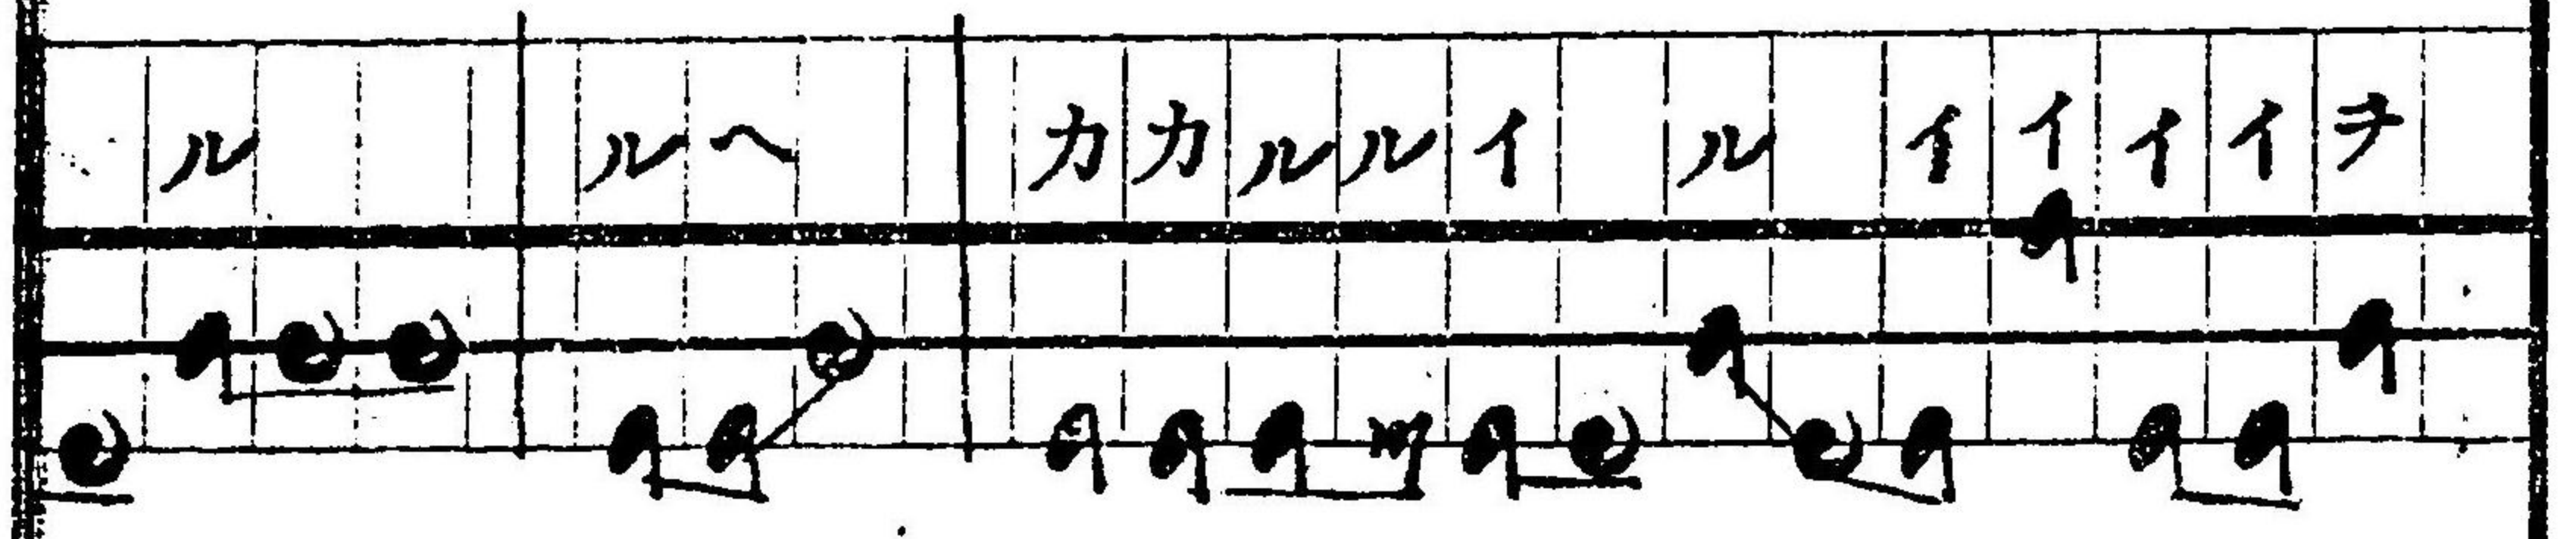 ル ルヘ カカルルイ ル イイイイヲ